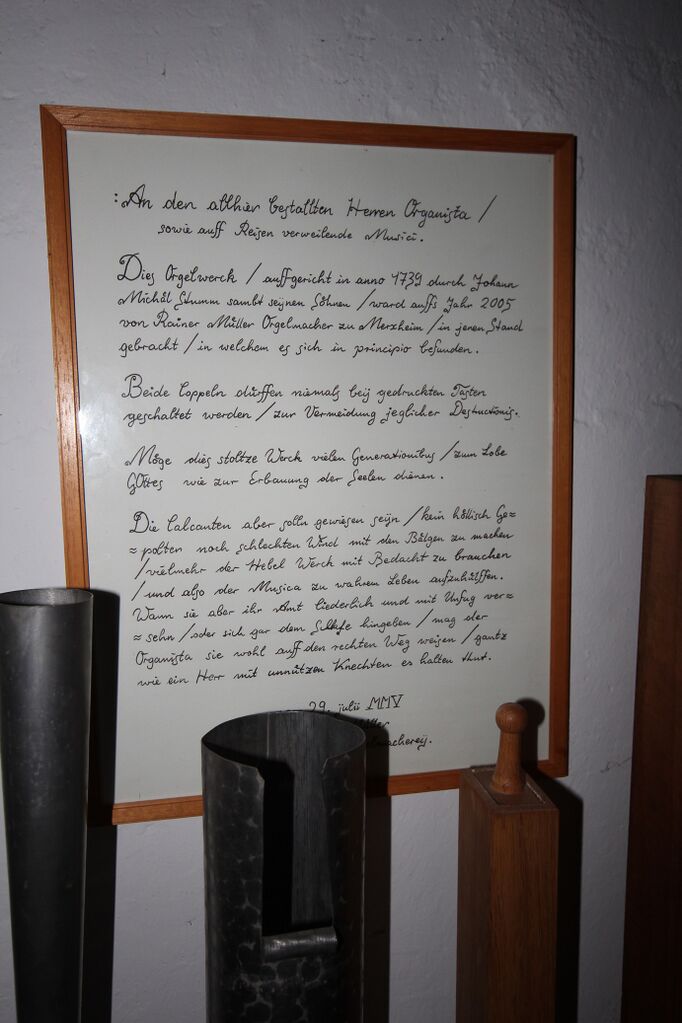 : An den allhier bestallten Herren Organista /
sowie auff Reisen verweilende Musici.
Dies Orgelwerck / auffgericht in anno 1739 durch Johann
Michäl Stumm sambt seÿnen Söhnen / ward auffs Jahr 2005
von Rainer Müller Orgelmacher zu Merxheim / in jenen Stand
gebracht / in welchem es sich in principio befunden.
Beide Coppeln dürffen niemals beÿ gedruckten Tasten
geschaltet werden / zur Vermeidung jeglicher Destructionis.
Möge dies stoltze Werck vielen Generationibus / zum Lobe
GOttes wie zur Erbauung der Seelen dienen.
Die Calcanten aber solln gewiesen seÿn / kein höllisch Ge=
=polten noch schlechten Wind mit den Bälgen zu machen
/ vielmehr der Hebel Werch mit Bedacht zu brauchen
/ und also der Musica zu wahren Leben aufzuhülffen.
Wann sie aber ihr Amt liederlich und mit Unfug ver=
=sehn / oder sich gar dem hingeben / mag der
Organista sie wohl auff den rechten Weg weisen / gantz
wie ein Herr mit unnützen Knechten es halten thut.
29. julii MMV